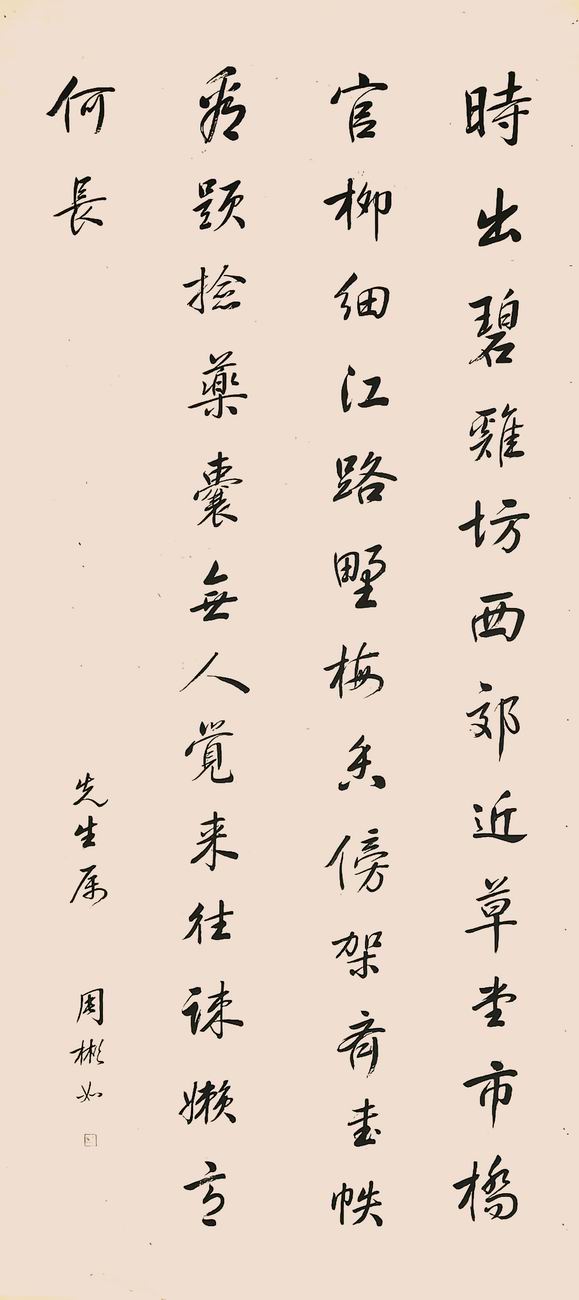 時出碧雞坊西郊近草堂市橋
官柳細江路墅梅香傍架齊書帙
看題撿藥囊無人覺来往疎嬾意
何長
先生属
周彬如